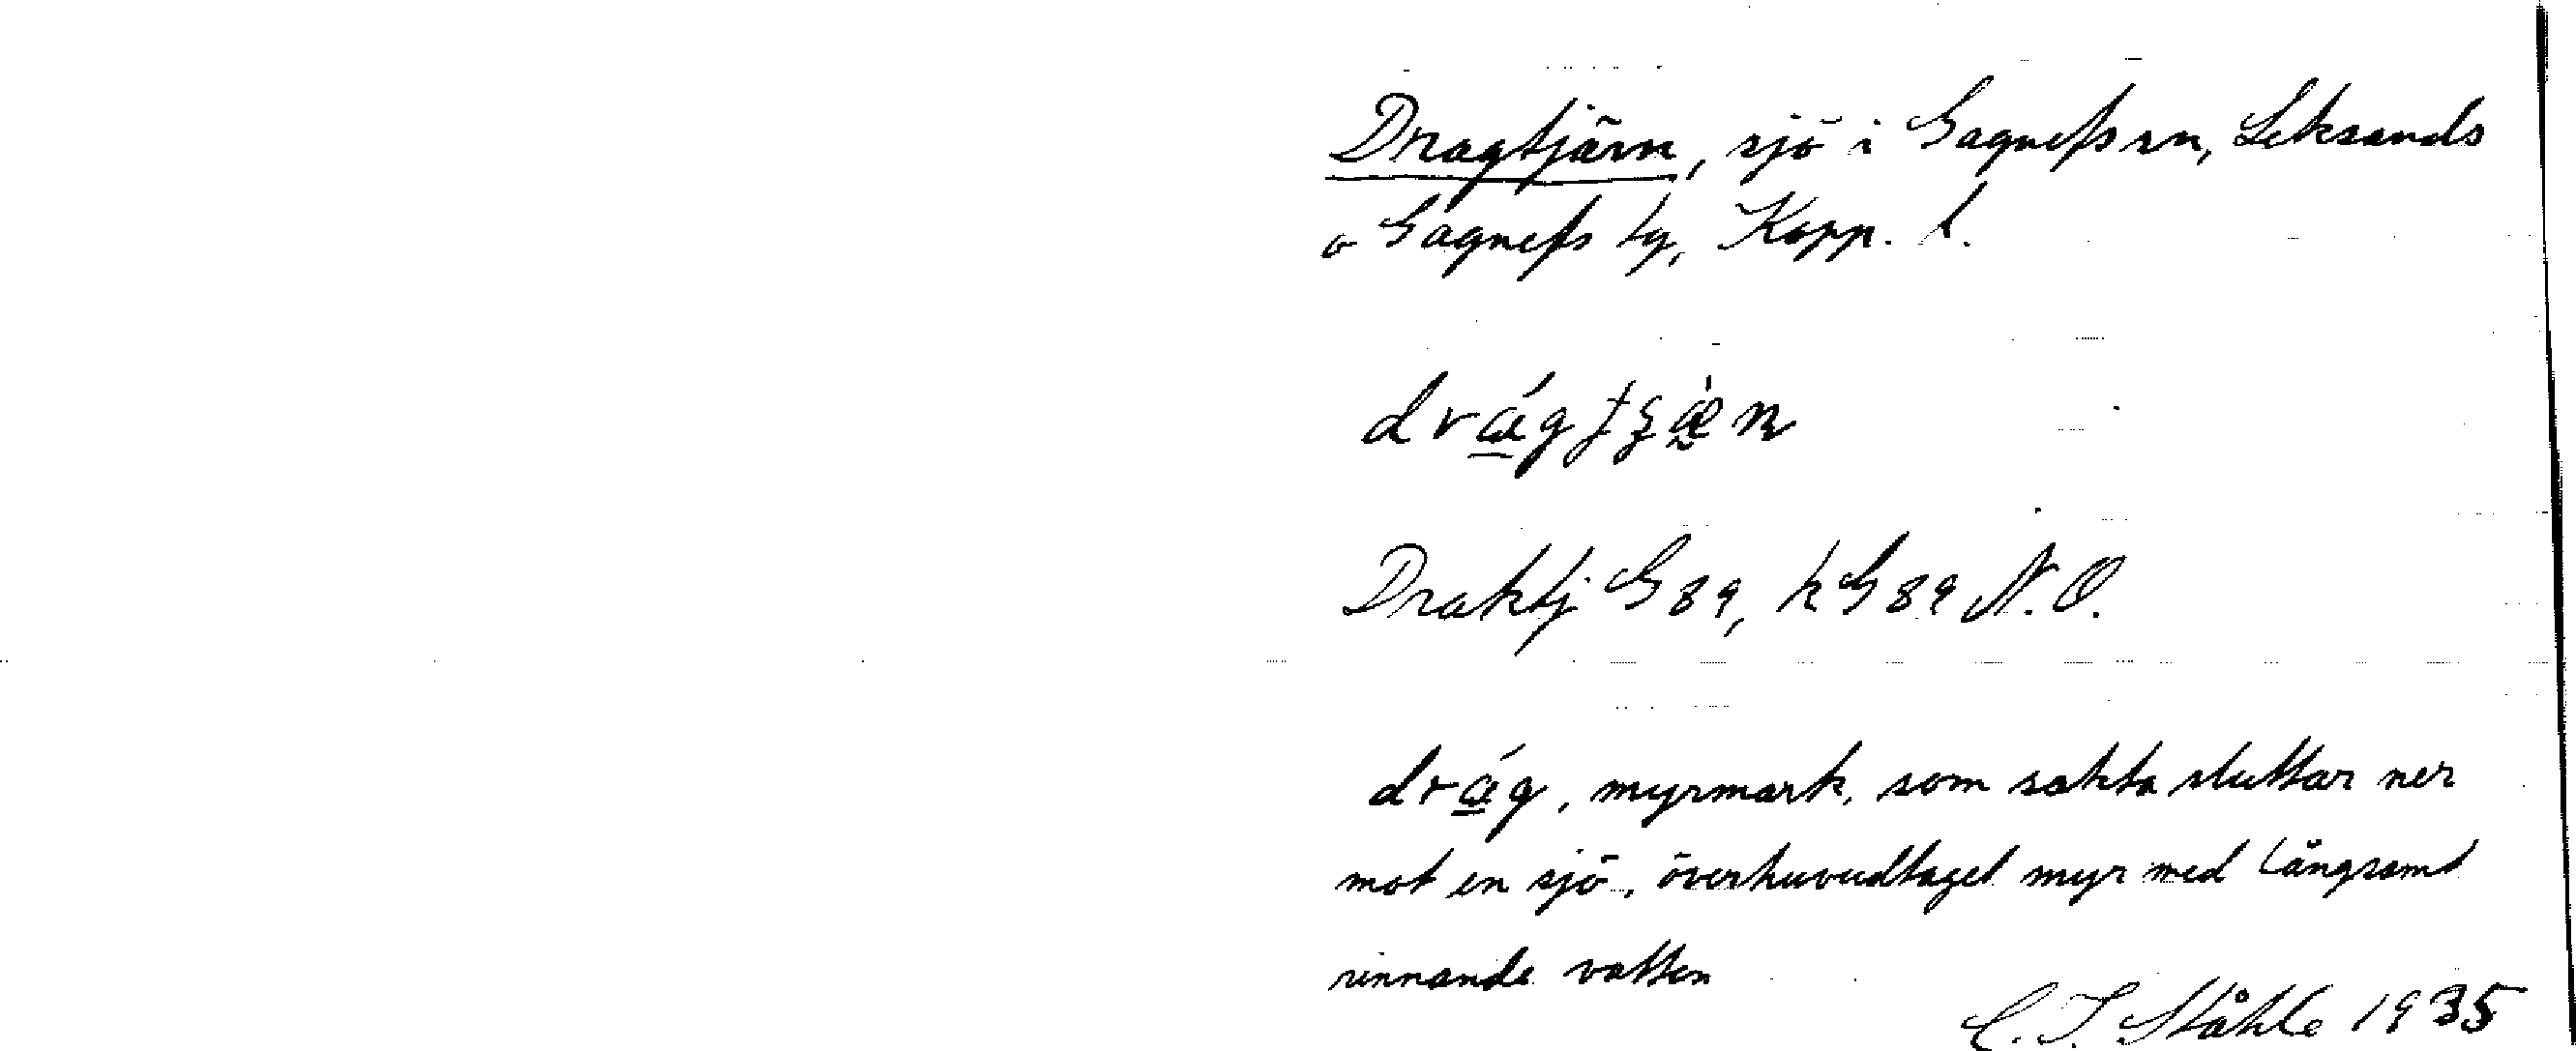 Dragtjärn, sjö i Gagnefs sn, Leksands
o Gagnefs tg, Kopp. l.
Draktj G89, hG89 N.O.
myrmark, som sakta sluttar ner
mot en sjö, överhuvudtaget myr med långsamt
rinnande vatten
C. I. Ståhle 1935